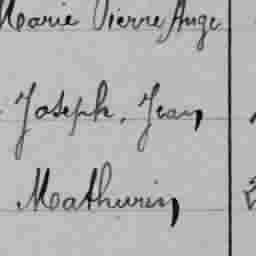 Marie Pierre Ange
Joseph, Jean
Mathurin